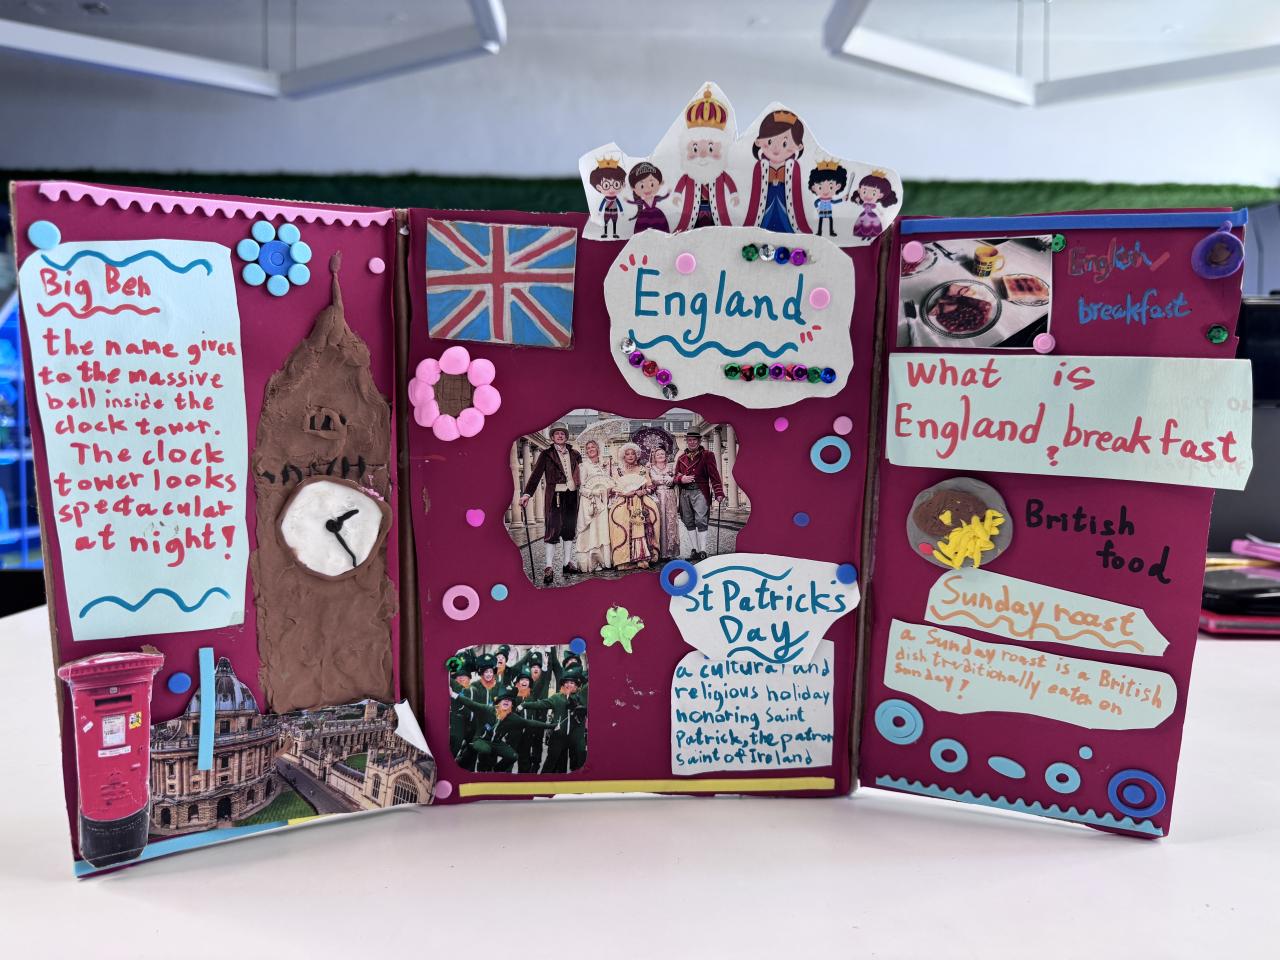 Big Ben
the name given
to the massive
bell inside the
clock tower.
The clock
tower looks
spectacular
at night!
England
St Patrick's
Day
a cultural and
religious holiday
honoring Saint
Patrick, the patron
saint of Ireland
English
breakfast
What is
England breakfast
?
British
food
Sunday roast
a Sunday roast is a British
dish traditionally eaten on
Sunday!